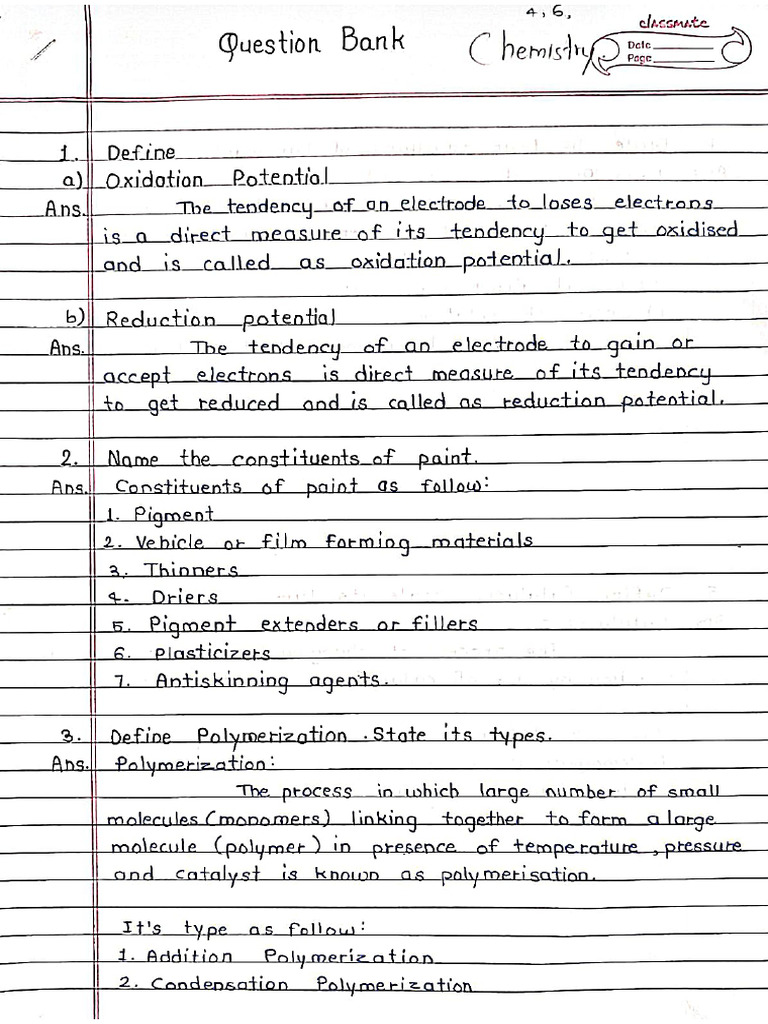 4, 6,
Question Bank
Chemistry
classmate
Date
Page
1. Define
a) Oxidation Potential
Ans. The tendency of an electrode to loses electrons
is a direct measure of its tendency to get oxidised
and is called as oxidation potential.
b) Reduction potential
Ans. The tendency of an electrode to gain or
accept electrons is direct measure of its tendency
to get reduced and is called as reduction potential.
2. Name the constituents of paint.
Ans. Constituents of paint as follow:
1. Pigment
2. Vehicle or film forming materials
3. Thinners
4. Driers
5. Pigment extenders or fillers
6. Plasticizers
7. Antiskinning agents.
3. Define Polymerization. State its types.
Ans. Polymerization:
The process in which large number of small
molecules (monomers) linking together to form a large
molecule (polymer) in presence of temperature, pressure
and catalyst is known as polymerisation.
It's type as follow:
1. Addition Polymerization
2. Condensation Polymerization